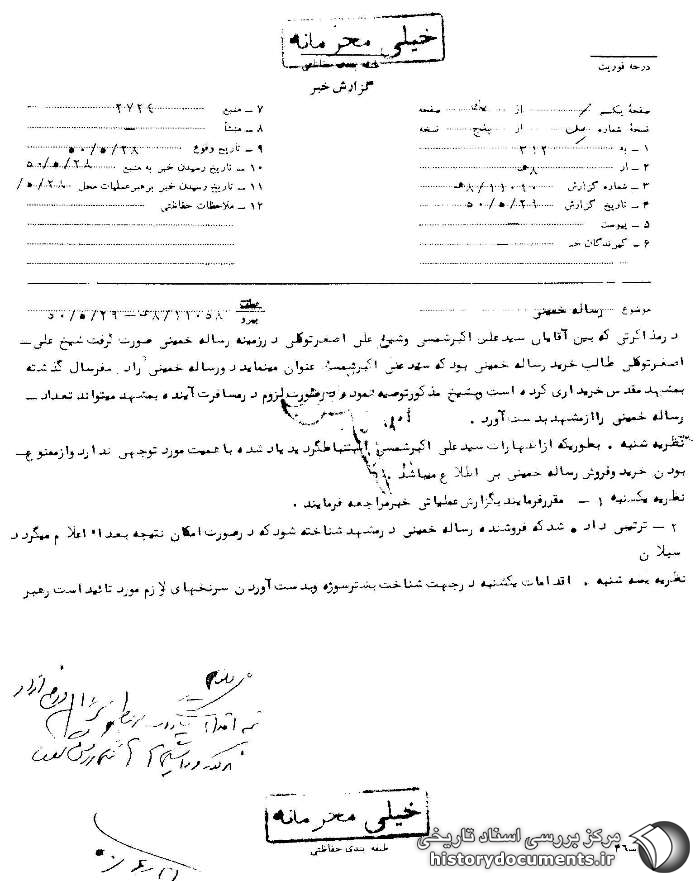 خیلی محرمانه
طبقه بندی حفاظتی
گزارش خبر
درجه فوریت
صفحهٔ یکم از صفحه
نسخهٔ شماره یک از پنج نسخه
۱ ـ به ۳۱۲
۲ ـ از ۸هـ
۳ ـ شماره گزارش ۸/۱۱۰۹۰هـ
۴ ـ تاریخ گزارش ۵۰/۵/۲۹
۵ ـ پیوست ـ
۶ ـ گیرندگان خبر ـ
۷ ـ منبع ۲۷۲۴
۸ ـ منشأ ـ
۹ ـ تاریخ وقوع ۵۰/۵/۲۸
۱۰ ـ تاریخ رسیدن خبر به منبع ۵۰/۵/۲۸
۱۱ ـ تاریخ رسیدن خبر برهبر عملیات محل /۵/۲۸
۱۲ ـ ملاحظات حفاظتی
موضوع رساله خمینی
عطف
پیرو
۸/۱۱۰۵۸هـ ـ ۵۰/۵/۲۹
در مذاکراتی که بین آقایان سید علی اکبر شمسی و شیخ علی اصغر توکلی در زمینه رساله خمینی صورت گرفت شیخ علی ـ
اصغر توکلی طالب خرید رساله خمینی بود که سید علی اکبر شمسی عنوان مینماید دو رساله خمینی را در سفر سال گذشته
بمشهد مقدس خریداری کرده است و بشیخ مذکور توصیه نموده در صورت لزوم در مسافرت آینده بمشهد میتواند تعداد ـ
رساله خمینی را از مشهد بدست آورد .
نظریه شنبه . بطوریکه از اظهارات سید علی اکبر شمسی استنباط گردید یاد شده با همیت مورد توجهی ندارد و از ممنوع ـ
بودن خرید و فروش رساله خمینی بی اطلاع میباشد .
نظریه یکشنبه ۱ ـ مقرر فرمایند بگزارش عملیاتی خبر مراجعه فرمایند .
۲ ـ ترتیبی داده شد که فروشنده رساله خمینی در مشهد شناخته شود که در صورت امکان نتیجه بعدا اعلام میگردد
سبلان
نظریه سه شنبه . اقدامات یکشنبه در جهت شناخت بیشتر سوژه و بدست آوردن سرنخهای لازم مورد تائید است رهبر
خیلی محرمانه
طبقه بندی حفاظتی
مرکز بررسی اسناد تاریخی
historydocuments.ir